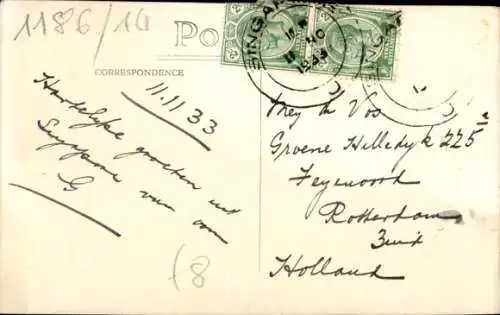 1186/14
PO
CORRESPONDENCE
SINGAPORE
11 NO
1933
11.11.33
Hartelijke groeten uit
Singapore van oom
G
Mej de Vos
Groene Hilledyk 225 a
Feyenoord
Rotterdam
Zuid
Holland
f8